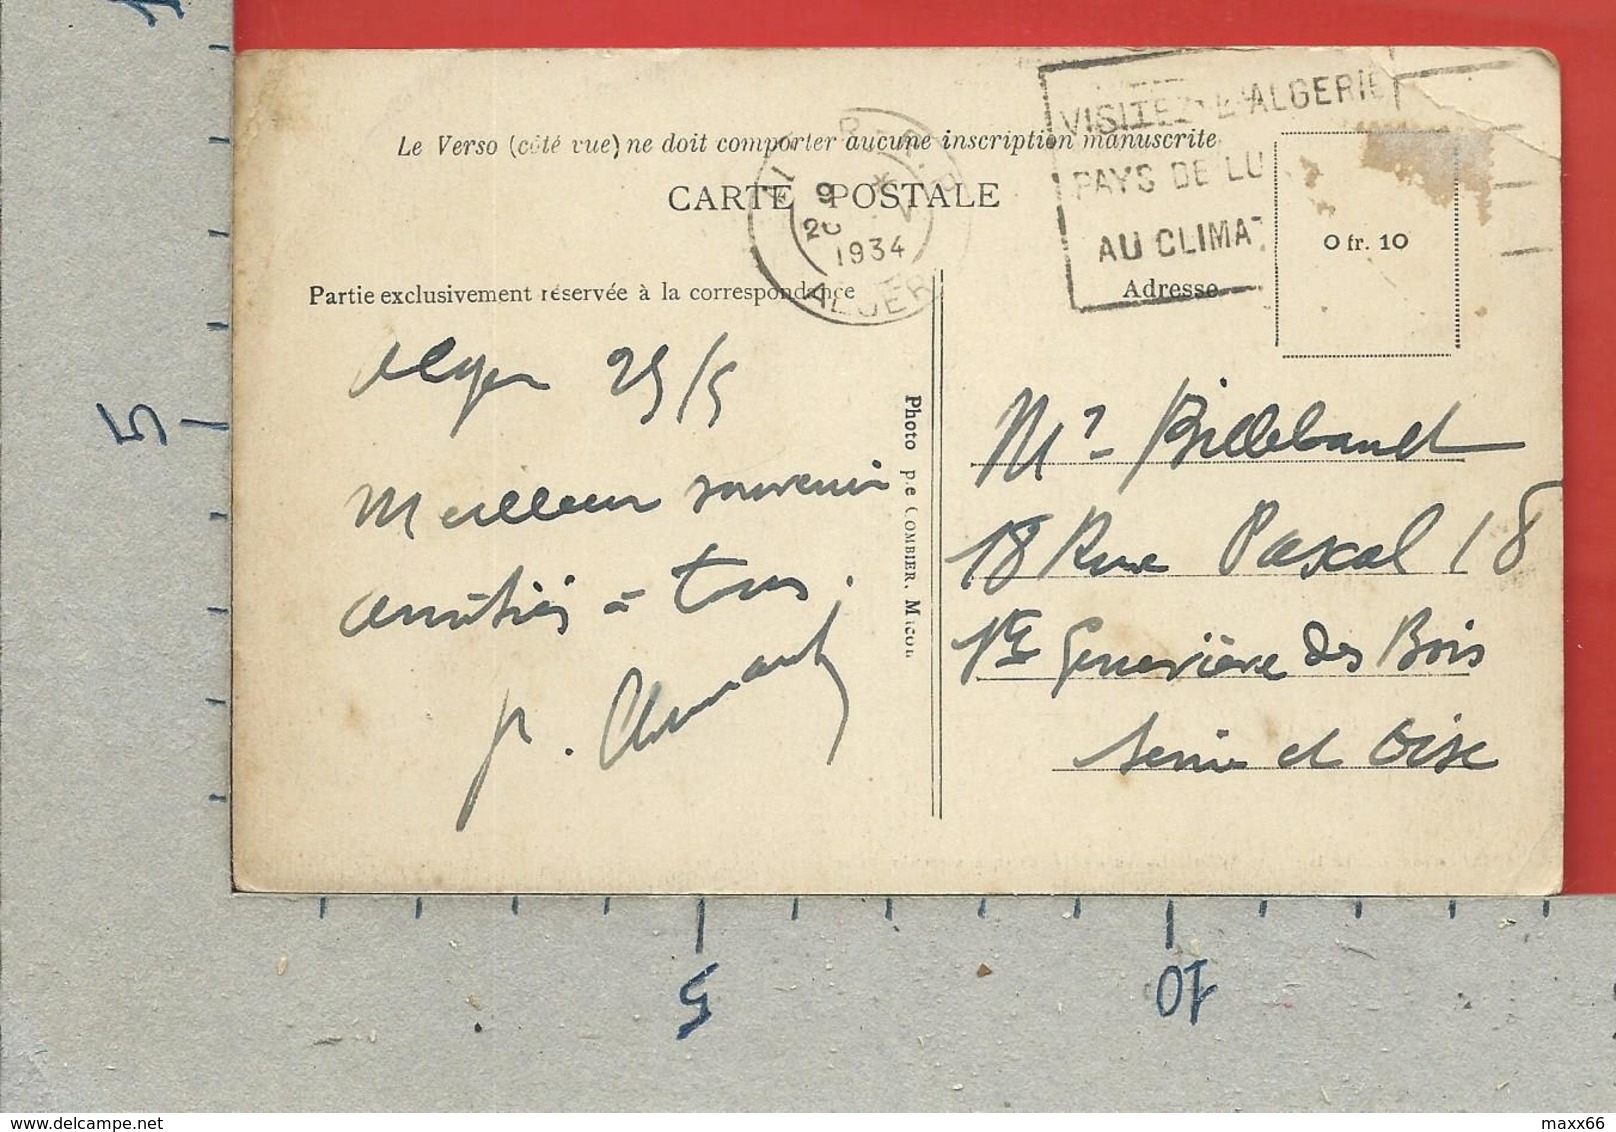 VISITEZ L'ALGERIE
PAYS DE LU
AU CLIMAT
Le Verso (côté vue) ne doit comporter aucune inscription manuscrite
CARTE POSTALE
9
1934
ALGER
0 fr. 10
Partie exclusivement réservée à la correspondance
Adresse
Alger 25/5
Meilleur souvenir
amitiés à tous.
Photo Combier, Macon
Mr Billebault
18 Rue Pascal 18
Ste Geneviève des Bois
Seine et Oise
5
5
10
delcampe.net
maxx66